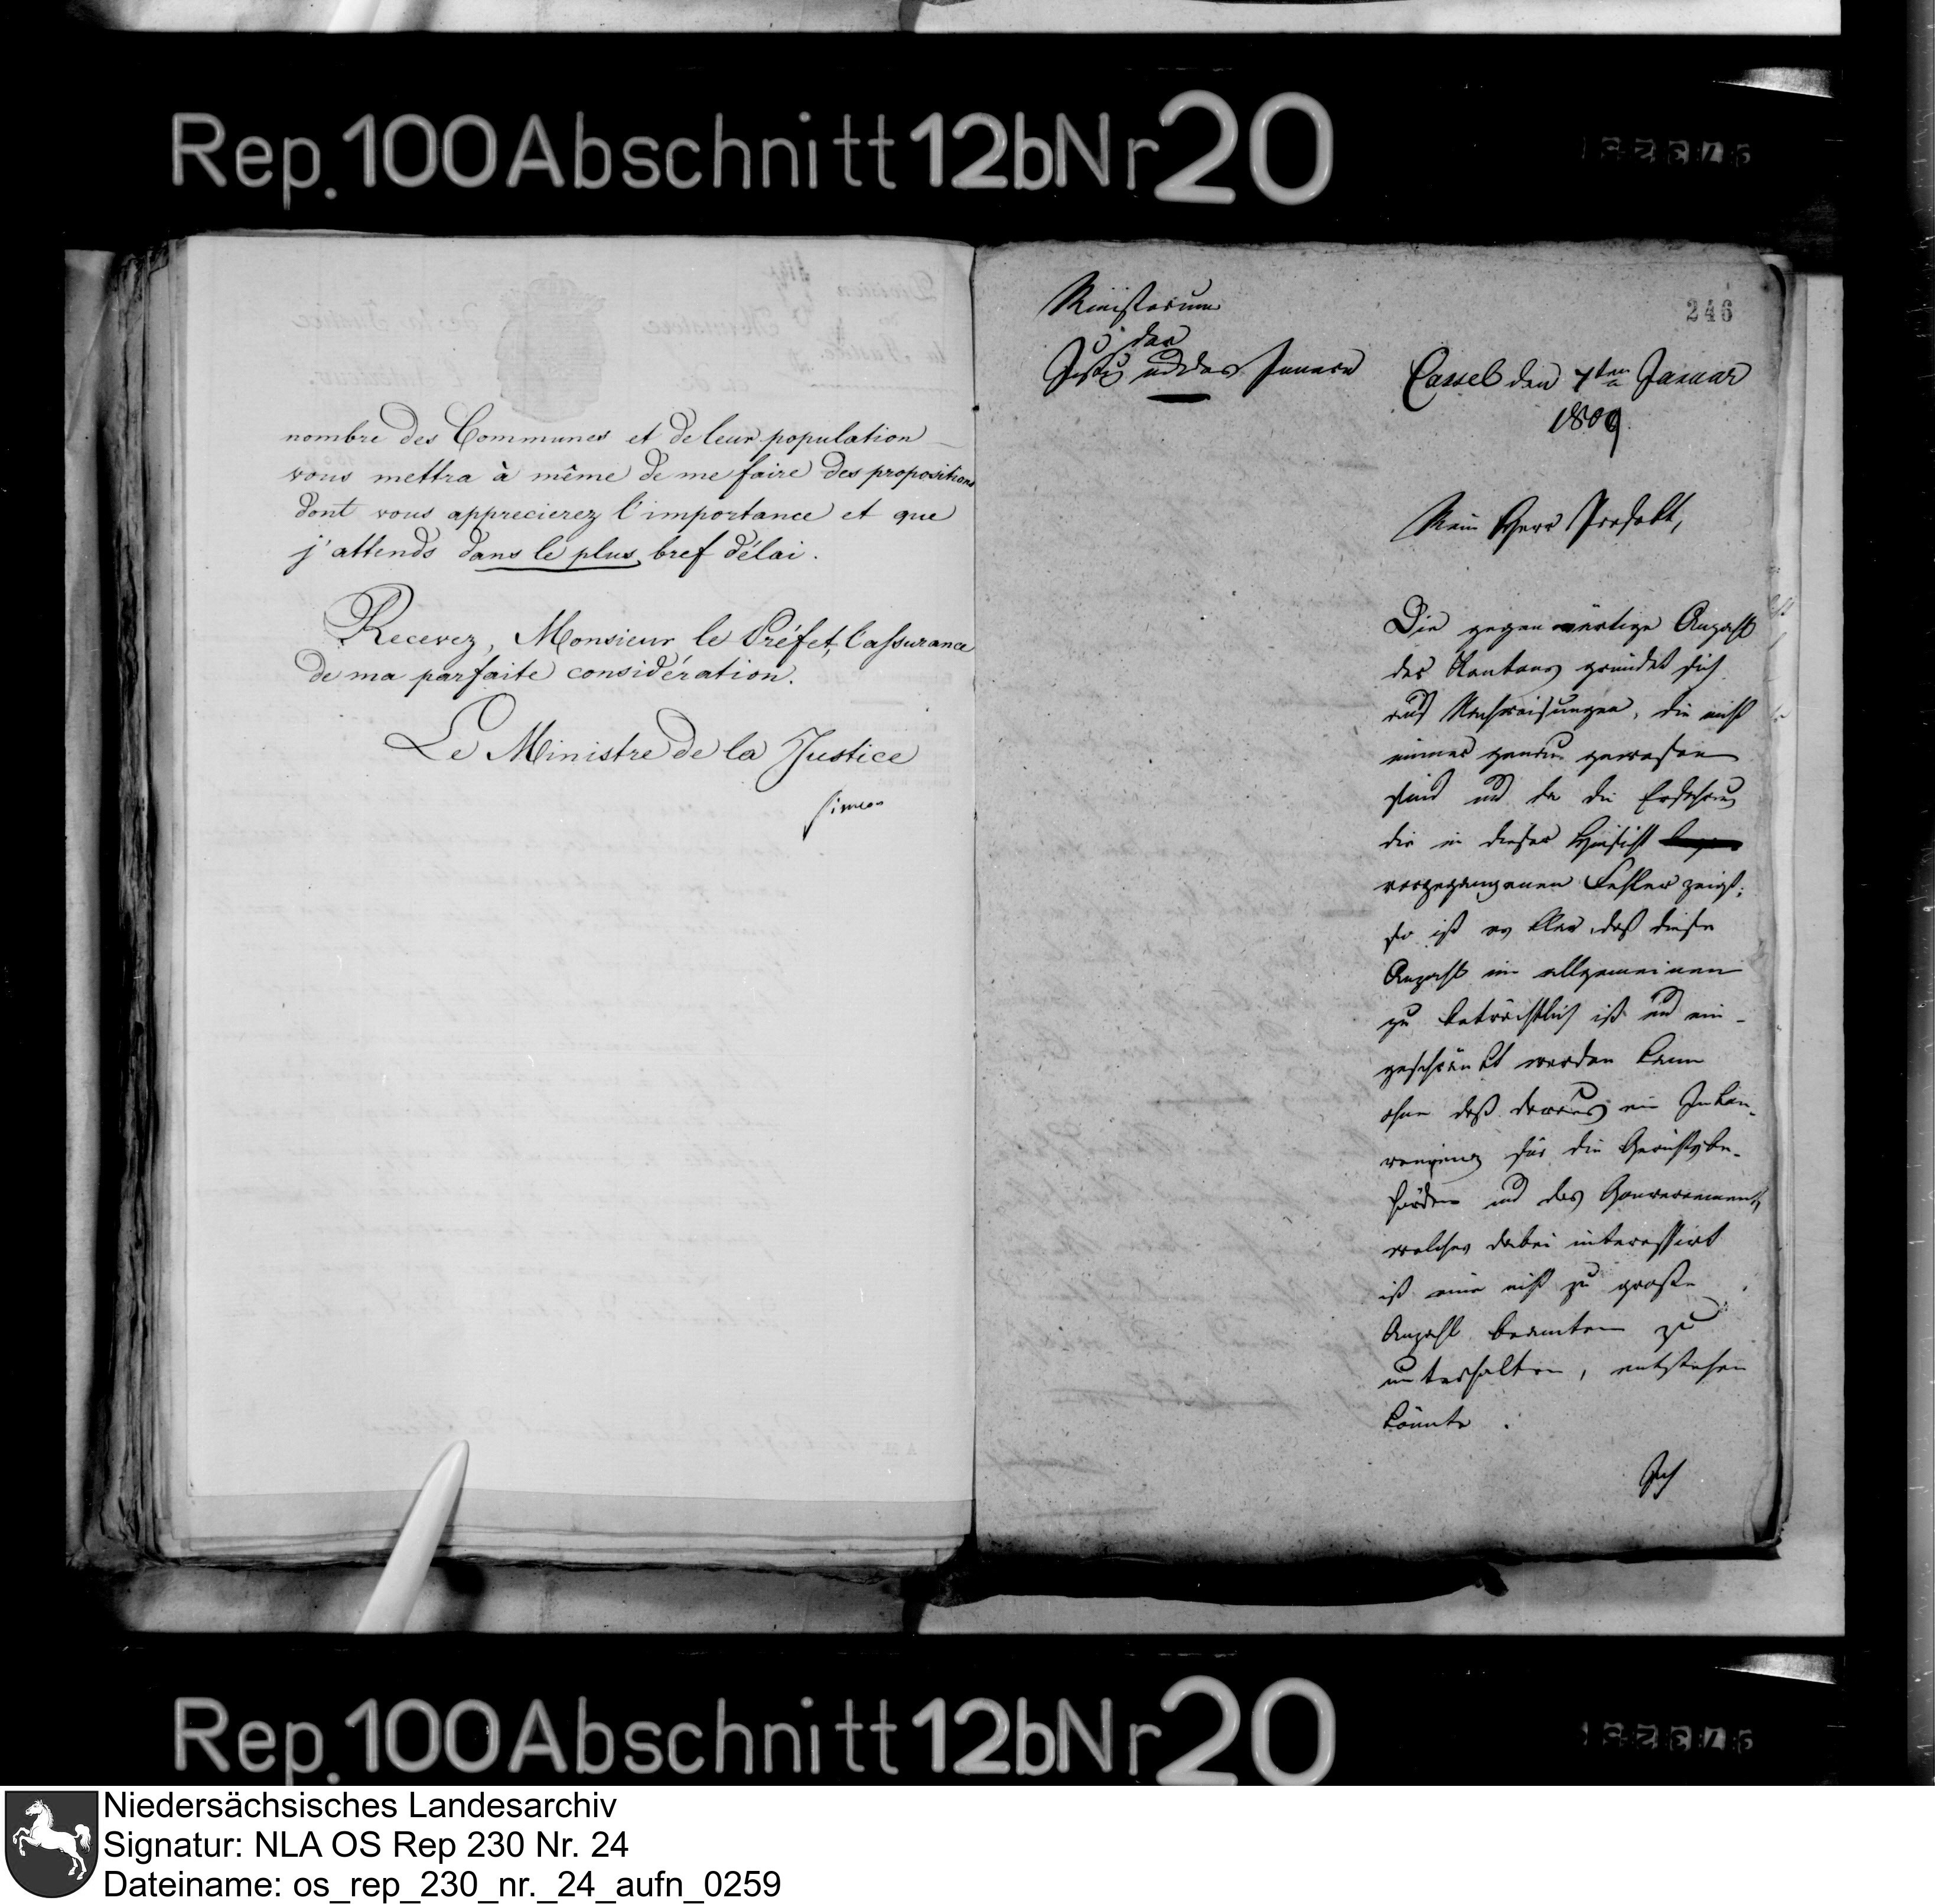 Rep. 100 Abschnitt 12b Nr 20
nombre des Communes et de leur population
vous mettra à même de me faire des propositions
dont vous apprecierez l'importance et que
j'attends dans le plus bref délai.
Recevez, Monsieur le Préfet, l'assurance
de ma parfaite considération.
Le Ministre de la Justice
Simeon
246
Ministerium
der
Justiz und des Innern
Cassel den 7ten Januar
1809
Mein Herr Praefekt,
Die gegenwärtige Anzahl
der Kantons gründet sich
auf Nachweisungen, die nicht
immer genau gewesen
sind und da die Erfahrung
die in dieser Hinsicht
vorgegangenen Fehler zeigt;
so ist es klar, daß diese
Anzahl im allgemeinen
zu beträchtlich ist und ein-
geschränkt werden kann
ohne daß daraus ein Inkon-
venienz für die Gerichtsbe-
hörden und das Gouvernement,
welches dabei interessirt
ist eine nicht zu große
Anzahl Beamten zu
unterhalten, entstehen
könnte.
Ich
Rep. 100 Abschnitt 12b Nr 20
Niedersächsisches Landesarchiv
Signatur: NLA OS Rep 230 Nr. 24
Dateiname: os_rep_230_nr._24_aufn_0259